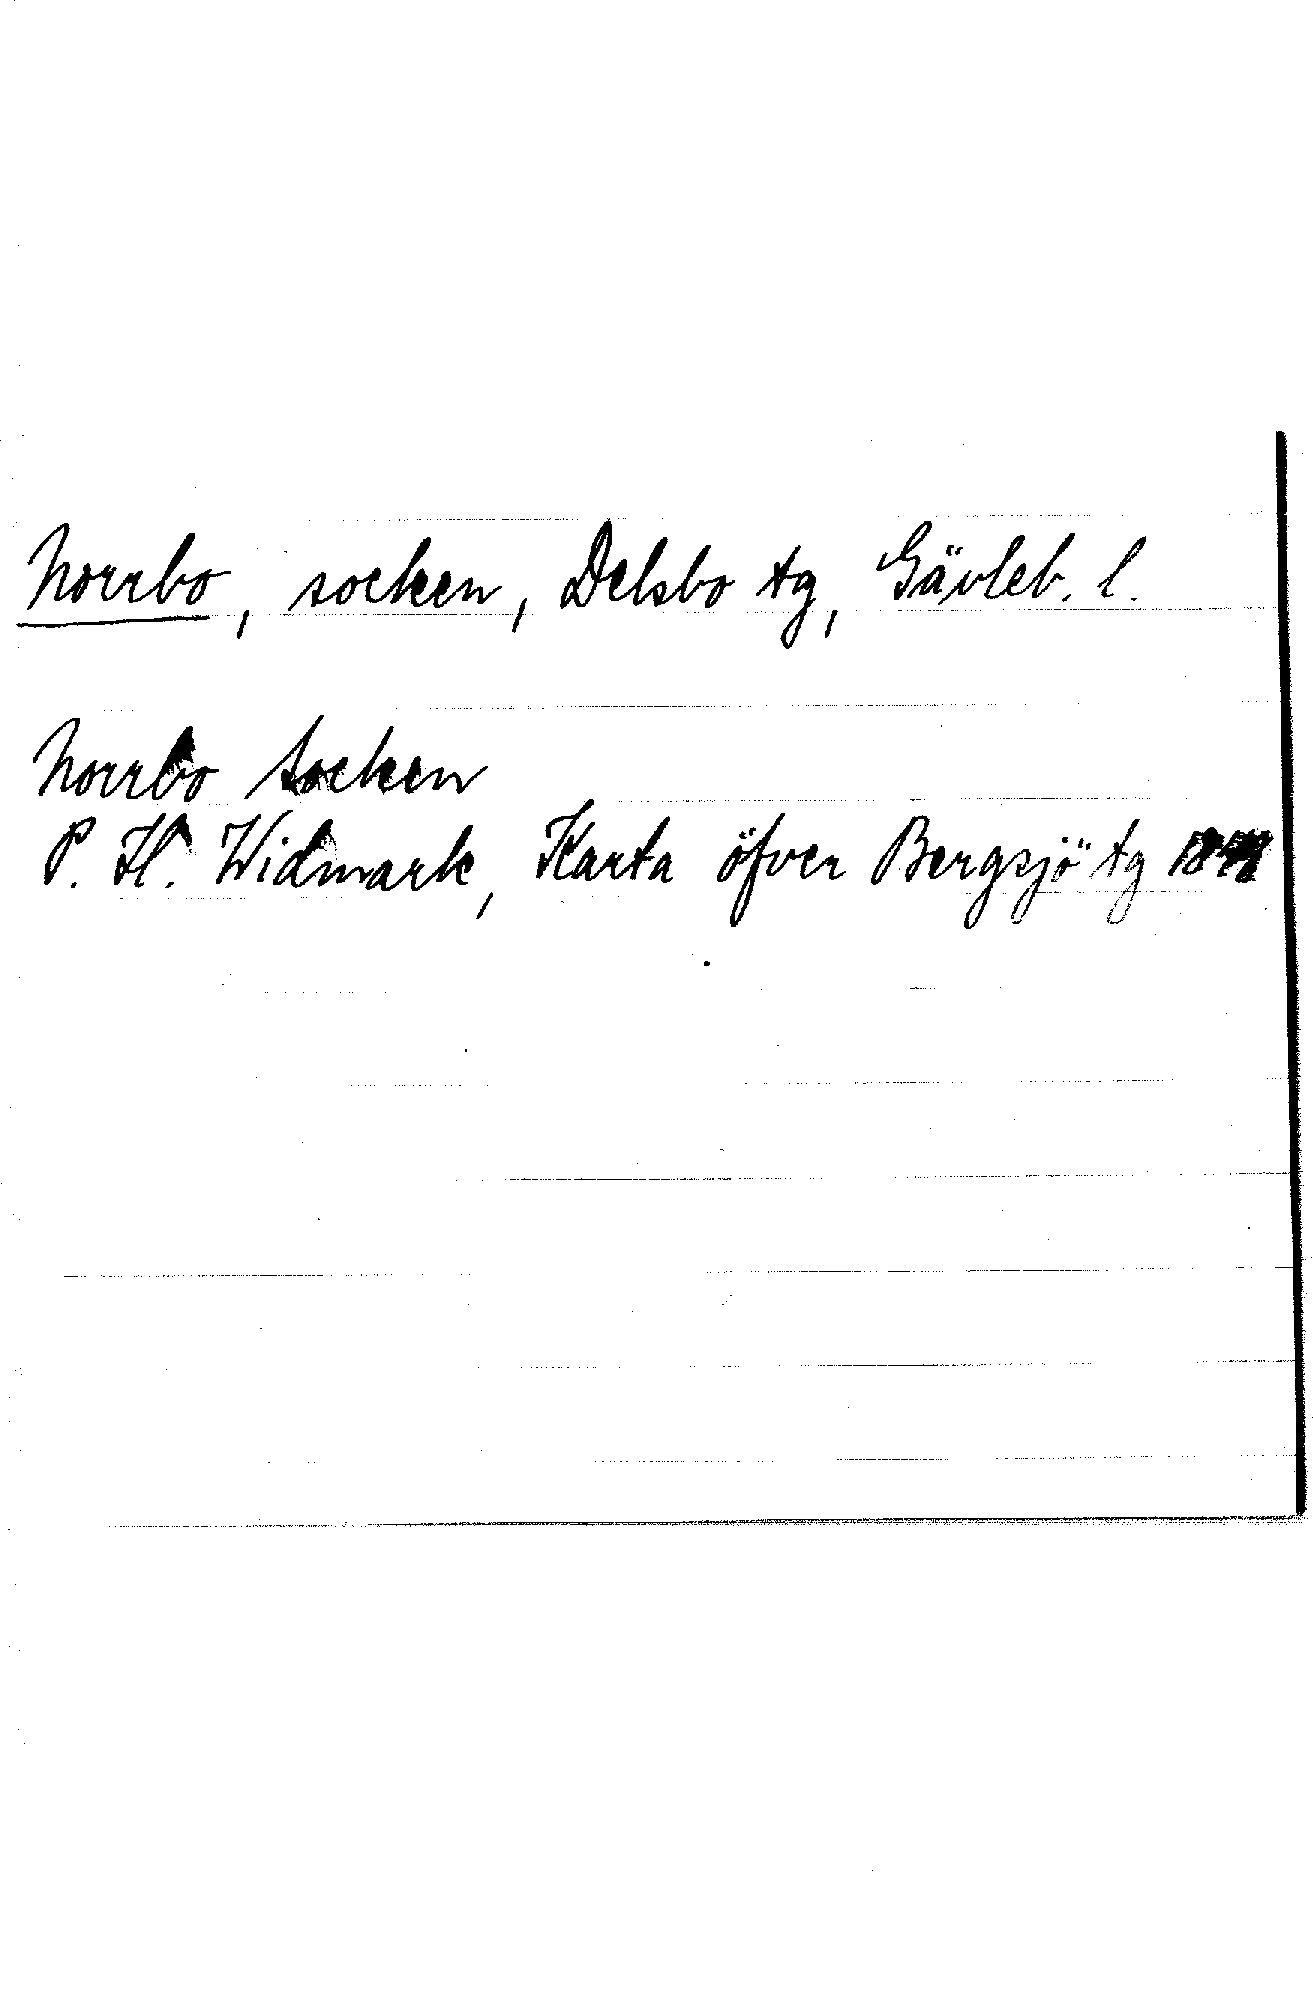 Norrbo, socken, Delsbo tg, Gävleb. l.
Norrbo Socken
P. H. Widmark, Karta öfver Bergsjö tg